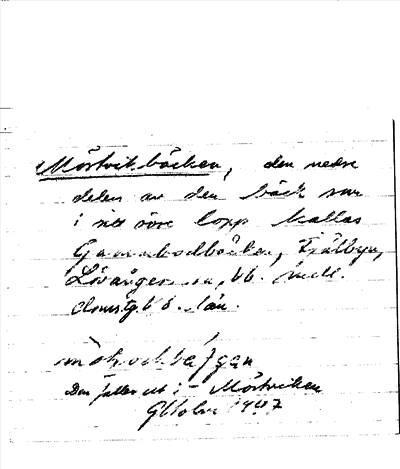 Mörtvikbäcken, den nedre
delen av den bäck som
i sitt övre lopp kallas
Gammbodbäcken, Fjälbyn,
Lövånger sn, Vb. mell.
doms.g. V. b. län.
Den faller ut i Mörtviken
Oktober 1947